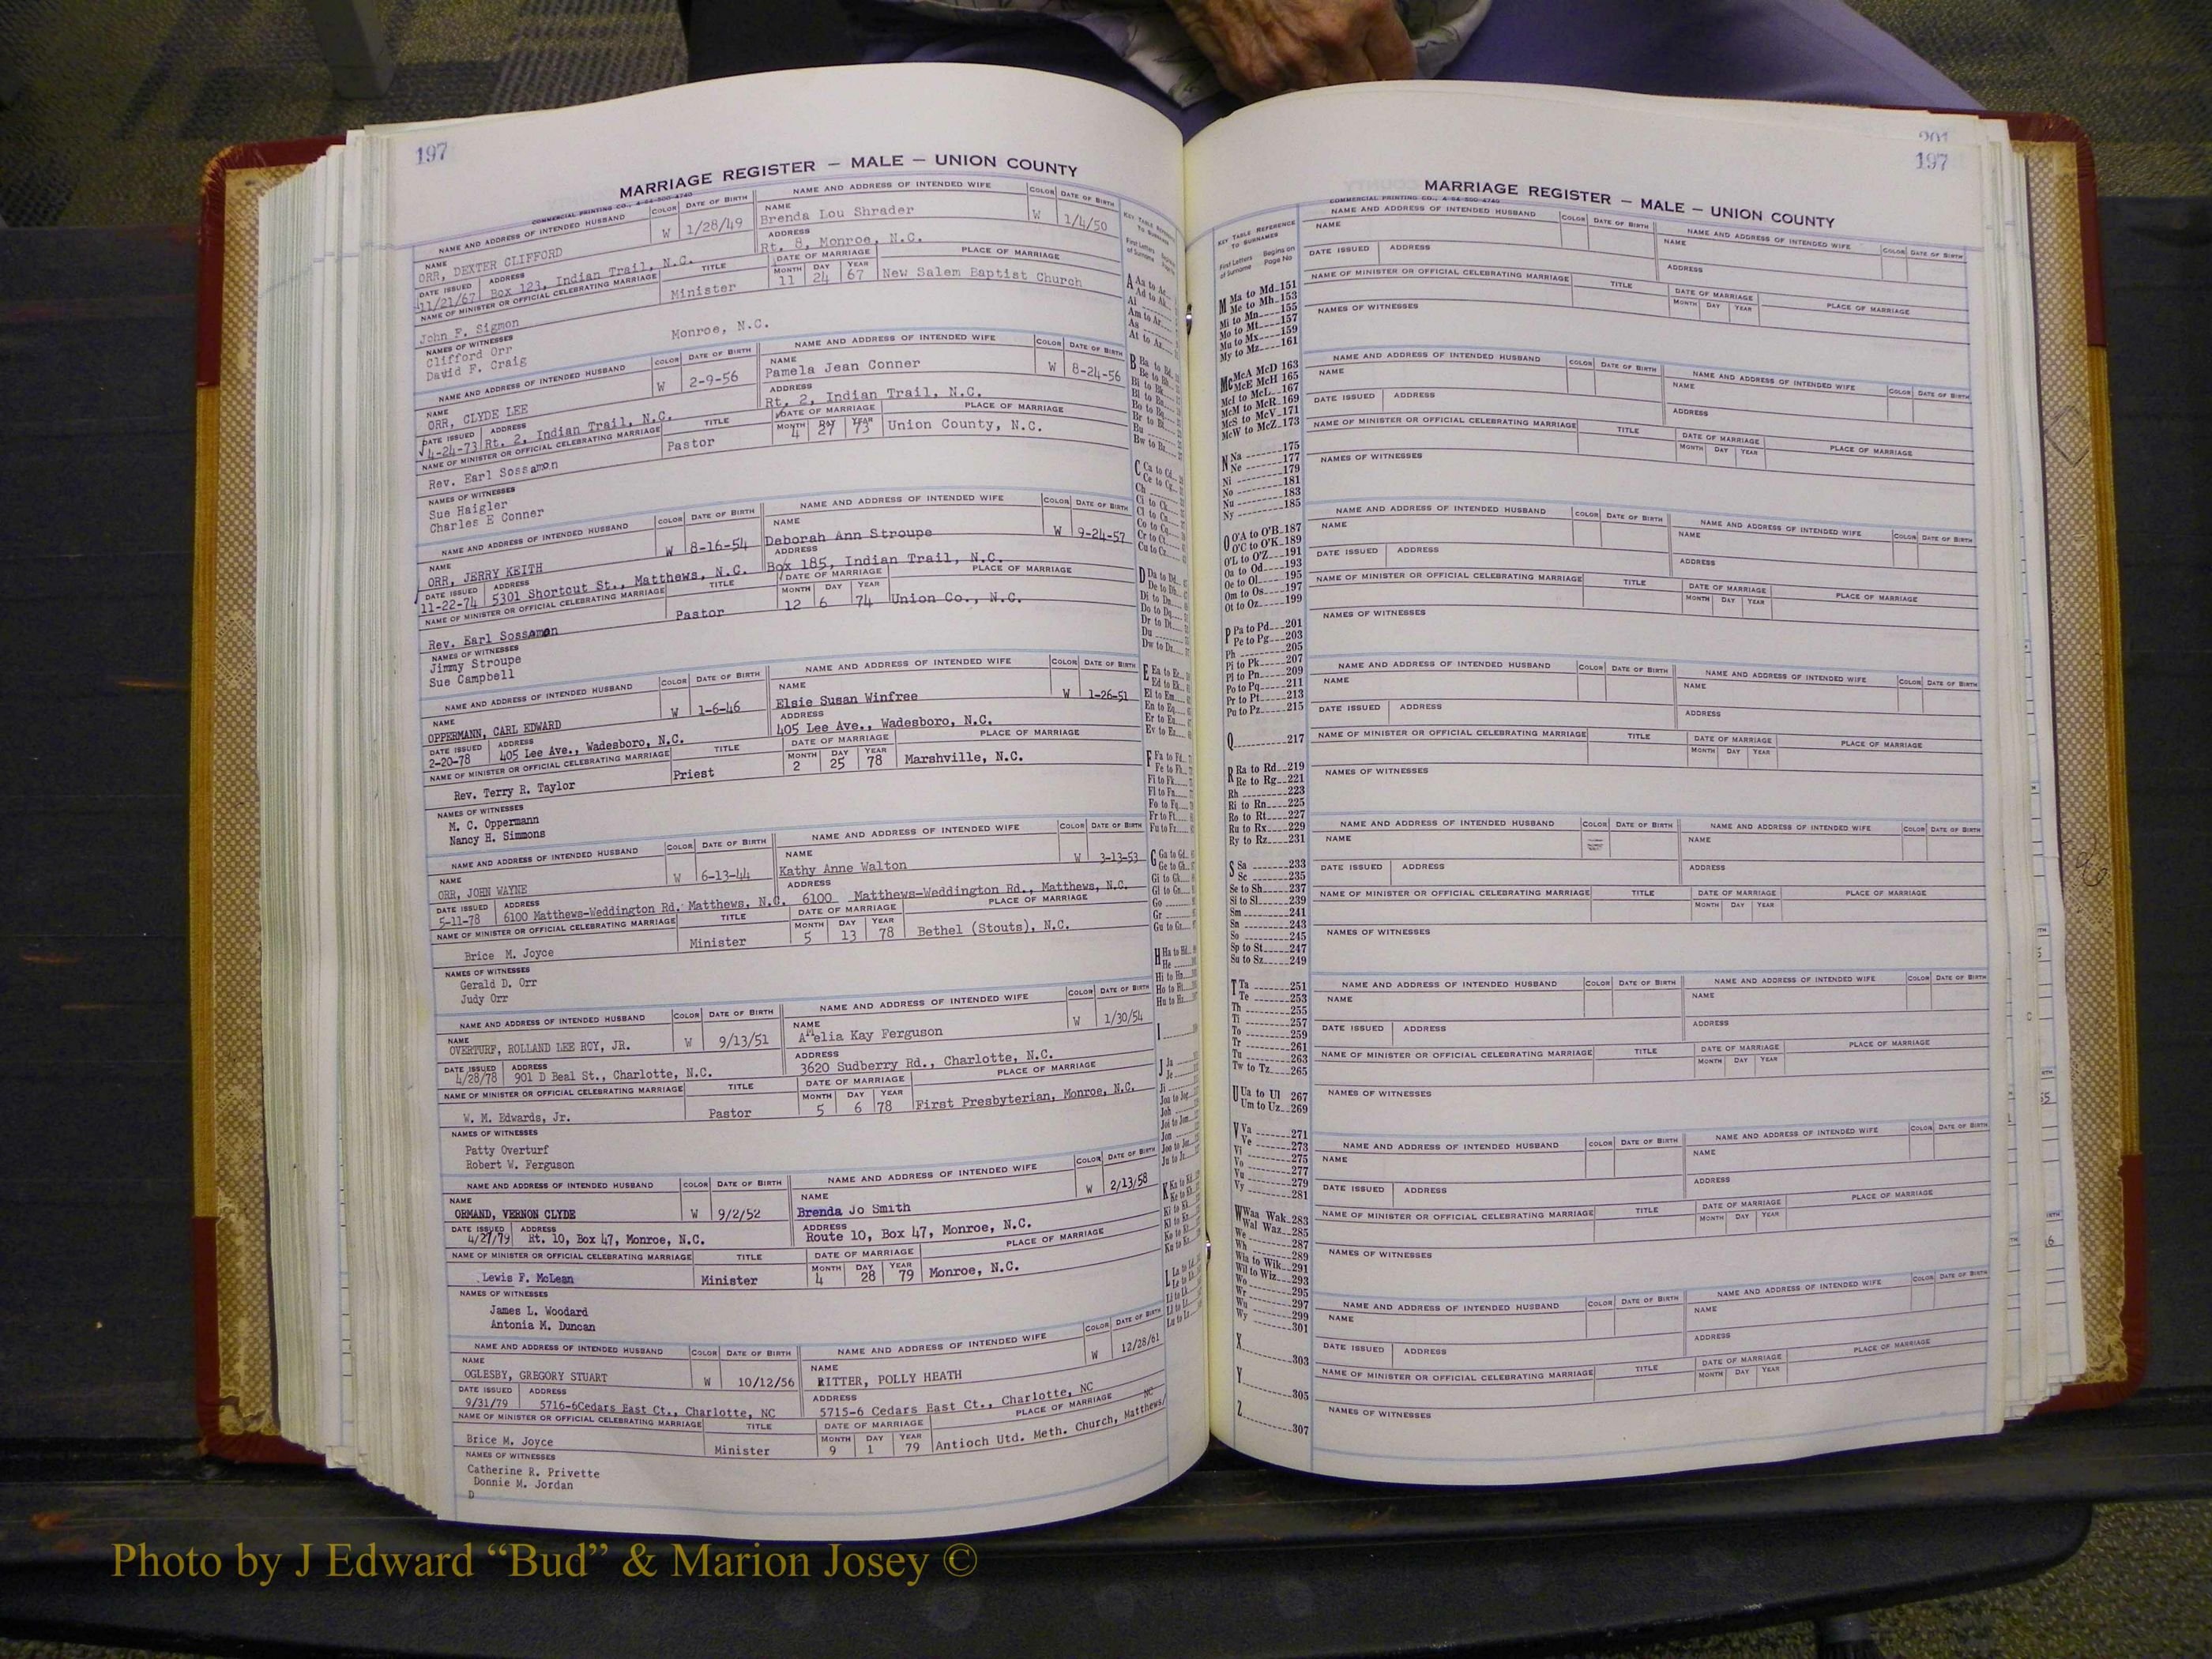 197
MARRIAGE REGISTER — MALE — UNION COUNTY
COMMERCIAL PRINTING CO., 4-64-500-4740
NAME AND ADDRESS OF INTENDED HUSBAND COLOR DATE OF BIRTH NAME AND ADDRESS OF INTENDED WIFE COLOR DATE OF BIRTH
NAME ORR, DEXTER CLIFFORD W 1/28/49 NAME Brenda Lou Shrader W 1/4/50
DATE ISSUED 11/21/67 ADDRESS Box 123, Indian Trail, N.C. ADDRESS Rt. 8, Monroe, N.C.
NAME OF MINISTER OR OFFICIAL CELEBRATING MARRIAGE TITLE DATE OF MARRIAGE PLACE OF MARRIAGE
John F. Sigmon Minister MONTH 11 DAY 24 YEAR 67 New Salem Baptist Church
NAMES OF WITNESSES
Clifford Orr Monroe, N.C.
David F. Craig
NAME AND ADDRESS OF INTENDED HUSBAND COLOR DATE OF BIRTH NAME AND ADDRESS OF INTENDED WIFE COLOR DATE OF BIRTH
NAME ORR, CLYDE LEE W 2-9-56 NAME Pamela Jean Conner W 8-24-56
DATE ISSUED 4-24-73 ADDRESS Rt. 2, Indian Trail, N.C. ADDRESS Rt. 2, Indian Trail, N.C.
NAME OF MINISTER OR OFFICIAL CELEBRATING MARRIAGE TITLE DATE OF MARRIAGE PLACE OF MARRIAGE
Rev. Earl Sossamon Pastor MONTH 4 DAY 27 YEAR 73 Union County, N.C.
NAMES OF WITNESSES
Sue Haigler
Charles E Conner
NAME AND ADDRESS OF INTENDED HUSBAND COLOR DATE OF BIRTH NAME AND ADDRESS OF INTENDED WIFE COLOR DATE OF BIRTH
NAME ORR, JERRY KEITH W 8-16-54 NAME Deborah Ann Stroupe W 9-24-57
DATE ISSUED 11-22-74 ADDRESS 5301 Shortcut St., Matthews, N.C. ADDRESS Box 185, Indian Trail, N.C.
NAME OF MINISTER OR OFFICIAL CELEBRATING MARRIAGE TITLE DATE OF MARRIAGE PLACE OF MARRIAGE
Rev. Earl Sossamon Pastor MONTH 12 DAY 6 YEAR 74 Union Co., N.C.
NAMES OF WITNESSES
Jimmy Stroupe
Sue Campbell
NAME AND ADDRESS OF INTENDED HUSBAND COLOR DATE OF BIRTH NAME AND ADDRESS OF INTENDED WIFE COLOR DATE OF BIRTH
NAME OPPERMANN, CARL EDWARD W 1-6-46 NAME Elsie Susan Winfree W 1-26-51
DATE ISSUED 2-20-78 ADDRESS 405 Lee Ave., Wadesboro, N.C. ADDRESS 405 Lee Ave., Wadesboro, N.C.
NAME OF MINISTER OR OFFICIAL CELEBRATING MARRIAGE TITLE DATE OF MARRIAGE PLACE OF MARRIAGE
Rev. Terry R. Taylor Priest MONTH 2 DAY 25 YEAR 78 Marshville, N.C.
NAMES OF WITNESSES
M. C. Oppermann
Nancy H. Simmons
NAME AND ADDRESS OF INTENDED HUSBAND COLOR DATE OF BIRTH NAME AND ADDRESS OF INTENDED WIFE COLOR DATE OF BIRTH
NAME ORR, JOHN WAYNE W 6-13-44 NAME Kathy Anne Walton W 3-13-53
DATE ISSUED 5-11-78 ADDRESS 6100 Matthews-Weddington Rd. Matthews, N.C. ADDRESS 6100 Matthews-Weddington Rd., Matthews, N.C.
NAME OF MINISTER OR OFFICIAL CELEBRATING MARRIAGE TITLE DATE OF MARRIAGE PLACE OF MARRIAGE
Brice M. Joyce Minister MONTH 5 DAY 13 YEAR 78 Bethel (Stouts), N.C.
NAMES OF WITNESSES
Gerald D. Orr
Judy Orr
NAME AND ADDRESS OF INTENDED HUSBAND COLOR DATE OF BIRTH NAME AND ADDRESS OF INTENDED WIFE COLOR DATE OF BIRTH
NAME OVERTURF, ROLLAND LEE ROY, JR. W 9/13/51 NAME Amelia Kay Ferguson W 1/30/54
DATE ISSUED 4/28/78 ADDRESS 901 D Beal St., Charlotte, N.C. ADDRESS 3620 Sudberry Rd., Charlotte, N.C.
NAME OF MINISTER OR OFFICIAL CELEBRATING MARRIAGE TITLE DATE OF MARRIAGE PLACE OF MARRIAGE
W. M. Edwards, Jr. Pastor MONTH 5 DAY 6 YEAR 78 First Presbyterian, Monroe, N.C.
NAMES OF WITNESSES
Patty Overturf
Robert W. Ferguson
NAME AND ADDRESS OF INTENDED HUSBAND COLOR DATE OF BIRTH NAME AND ADDRESS OF INTENDED WIFE COLOR DATE OF BIRTH
NAME ORMAND, VERNON CLYDE W 9/2/52 NAME Brenda Jo Smith W 2/13/58
DATE ISSUED 4/27/79 ADDRESS Rt. 10, Box 47, Monroe, N.C. ADDRESS Route 10, Box 47, Monroe, N.C.
NAME OF MINISTER OR OFFICIAL CELEBRATING MARRIAGE TITLE DATE OF MARRIAGE PLACE OF MARRIAGE
Lewis F. McLean Minister MONTH 4 DAY 28 YEAR 79 Monroe, N.C.
NAMES OF WITNESSES
James L. Woodard
Antonia M. Duncan
NAME AND ADDRESS OF INTENDED HUSBAND COLOR DATE OF BIRTH NAME AND ADDRESS OF INTENDED WIFE COLOR DATE OF BIRTH
NAME OGLESBY, GREGORY STUART W 10/12/56 NAME RITTER, POLLY HEATH W 12/28/61
DATE ISSUED 9/31/79 ADDRESS 5716-6Cedars East Ct., Charlotte, NC ADDRESS 5715-6 Cedars East Ct., Charlotte, NC
NAME OF MINISTER OR OFFICIAL CELEBRATING MARRIAGE TITLE DATE OF MARRIAGE PLACE OF MARRIAGE
Brice M. Joyce Minister MONTH 9 DAY 1 YEAR 79 Antioch Utd. Meth. Church, Matthews/ NC
NAMES OF WITNESSES
Catherine R. Privette
Donnie M. Jordan
D
201
197
MARRIAGE REGISTER — MALE — UNION COUNTY
COMMERCIAL PRINTING CO., 4-64-500-4740
KEY TABLE REFERENCE
TO SURNAMES
First Letters of Surname Begins on Page No
M Ma to Md 151
Me to Mh 153
Mi to Mn 155
Mo to Mt 157
Mu to Mx 159
My to Mz 161
Mc McA McD 163
McE McH 165
McI to McL 167
McM to McR 169
McS to McV 171
McW to McZ 173
N Na 175
Ne 177
Ni 179
No 181
Nu 183
Ny 185
O O'A to O'B 187
O'C to O'K 189
O'L to O'Z 191
Oa to Od 193
Oe to Ol 195
Om to Os 197
Ot to Oz 199
P Pa to Pd 201
Pe to Pg 203
Ph 205
Pi to Pk 207
Pl to Pn 209
Po to Pq 211
Pr to Pt 213
Pu to Pz 215
Q 217
R Ra to Rd 219
Re to Rg 221
Rh 223
Ri to Rn 225
Ro to Rt 227
Ru to Rx 229
Ry to Rz 231
S Sa 233
Sc 235
Se to Sh 237
Si to Sl 239
Sm 241
Sn 243
So 245
Sp to St 247
Su to Sz 249
T Ta 251
Te 253
Th 255
Ti 257
To 259
Tr 261
Tu 263
Tw to Tz 265
U Ua to Ul 267
Um to Uz 269
V Va 271
Ve 273
Vi 275
Vo 277
Vu 279
Vy 281
W Waa Wak 283
Wal Waz 285
We 287
Wh 289
Wia to Wik 291
Wil to Wiz 293
Wo 295
Wr 297
Wu 299
Wy 301
X 303
Y 305
Z 307
NAME AND ADDRESS OF INTENDED HUSBAND COLOR DATE OF BIRTH NAME AND ADDRESS OF INTENDED WIFE COLOR DATE OF BIRTH
NAME NAME
DATE ISSUED ADDRESS ADDRESS
NAME OF MINISTER OR OFFICIAL CELEBRATING MARRIAGE TITLE DATE OF MARRIAGE PLACE OF MARRIAGE
MONTH DAY YEAR
NAMES OF WITNESSES
NAME AND ADDRESS OF INTENDED HUSBAND COLOR DATE OF BIRTH NAME AND ADDRESS OF INTENDED WIFE COLOR DATE OF BIRTH
NAME NAME
DATE ISSUED ADDRESS ADDRESS
NAME OF MINISTER OR OFFICIAL CELEBRATING MARRIAGE TITLE DATE OF MARRIAGE PLACE OF MARRIAGE
MONTH DAY YEAR
NAMES OF WITNESSES
NAME AND ADDRESS OF INTENDED HUSBAND COLOR DATE OF BIRTH NAME AND ADDRESS OF INTENDED WIFE COLOR DATE OF BIRTH
NAME NAME
DATE ISSUED ADDRESS ADDRESS
NAME OF MINISTER OR OFFICIAL CELEBRATING MARRIAGE TITLE DATE OF MARRIAGE PLACE OF MARRIAGE
MONTH DAY YEAR
NAMES OF WITNESSES
NAME AND ADDRESS OF INTENDED HUSBAND COLOR DATE OF BIRTH NAME AND ADDRESS OF INTENDED WIFE COLOR DATE OF BIRTH
NAME NAME
DATE ISSUED ADDRESS ADDRESS
NAME OF MINISTER OR OFFICIAL CELEBRATING MARRIAGE TITLE DATE OF MARRIAGE PLACE OF MARRIAGE
MONTH DAY YEAR
NAMES OF WITNESSES
NAME AND ADDRESS OF INTENDED HUSBAND COLOR DATE OF BIRTH NAME AND ADDRESS OF INTENDED WIFE COLOR DATE OF BIRTH
NAME NAME
DATE ISSUED ADDRESS ADDRESS
NAME OF MINISTER OR OFFICIAL CELEBRATING MARRIAGE TITLE DATE OF MARRIAGE PLACE OF MARRIAGE
MONTH DAY YEAR
NAMES OF WITNESSES
NAME AND ADDRESS OF INTENDED HUSBAND COLOR DATE OF BIRTH NAME AND ADDRESS OF INTENDED WIFE COLOR DATE OF BIRTH
NAME NAME
DATE ISSUED ADDRESS ADDRESS
NAME OF MINISTER OR OFFICIAL CELEBRATING MARRIAGE TITLE DATE OF MARRIAGE PLACE OF MARRIAGE
MONTH DAY YEAR
NAMES OF WITNESSES
NAME AND ADDRESS OF INTENDED HUSBAND COLOR DATE OF BIRTH NAME AND ADDRESS OF INTENDED WIFE COLOR DATE OF BIRTH
NAME NAME
DATE ISSUED ADDRESS ADDRESS
NAME OF MINISTER OR OFFICIAL CELEBRATING MARRIAGE TITLE DATE OF MARRIAGE PLACE OF MARRIAGE
MONTH DAY YEAR
NAMES OF WITNESSES
NAME AND ADDRESS OF INTENDED HUSBAND COLOR DATE OF BIRTH NAME AND ADDRESS OF INTENDED WIFE COLOR DATE OF BIRTH
NAME NAME
DATE ISSUED ADDRESS ADDRESS
NAME OF MINISTER OR OFFICIAL CELEBRATING MARRIAGE TITLE DATE OF MARRIAGE PLACE OF MARRIAGE
MONTH DAY YEAR
NAMES OF WITNESSES
Photo by J Edward “Bud” & Marion Josey ©